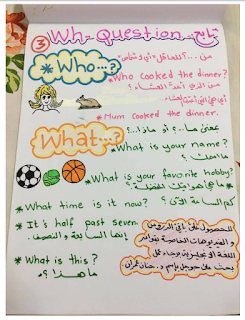 تابع Wh- Question
3
Who...?
من ...؟ للعاقل "أي شخص"
*Who cooked the dinner?
من الذي أعد العشاء؟
*Mum cooked the dinner.
What...?
بمعنى ما..؟ أو ماذا..؟
*What is your name?
ما اسمك؟
*What is your favorite hobby?
*ما هي هوايتك المفضلة؟
*What time is it now?
كم الساعة الآن؟
*It's half past seven.
إنها السابعة والنصف.
*What is this?
ما هذا؟
للحصول على باقي الدروس
والفيديوهات الخاصة بقواعد
اللغة الإنجليزية برجاء عمل
بحث على جوجل بإسم د. حنان عمران